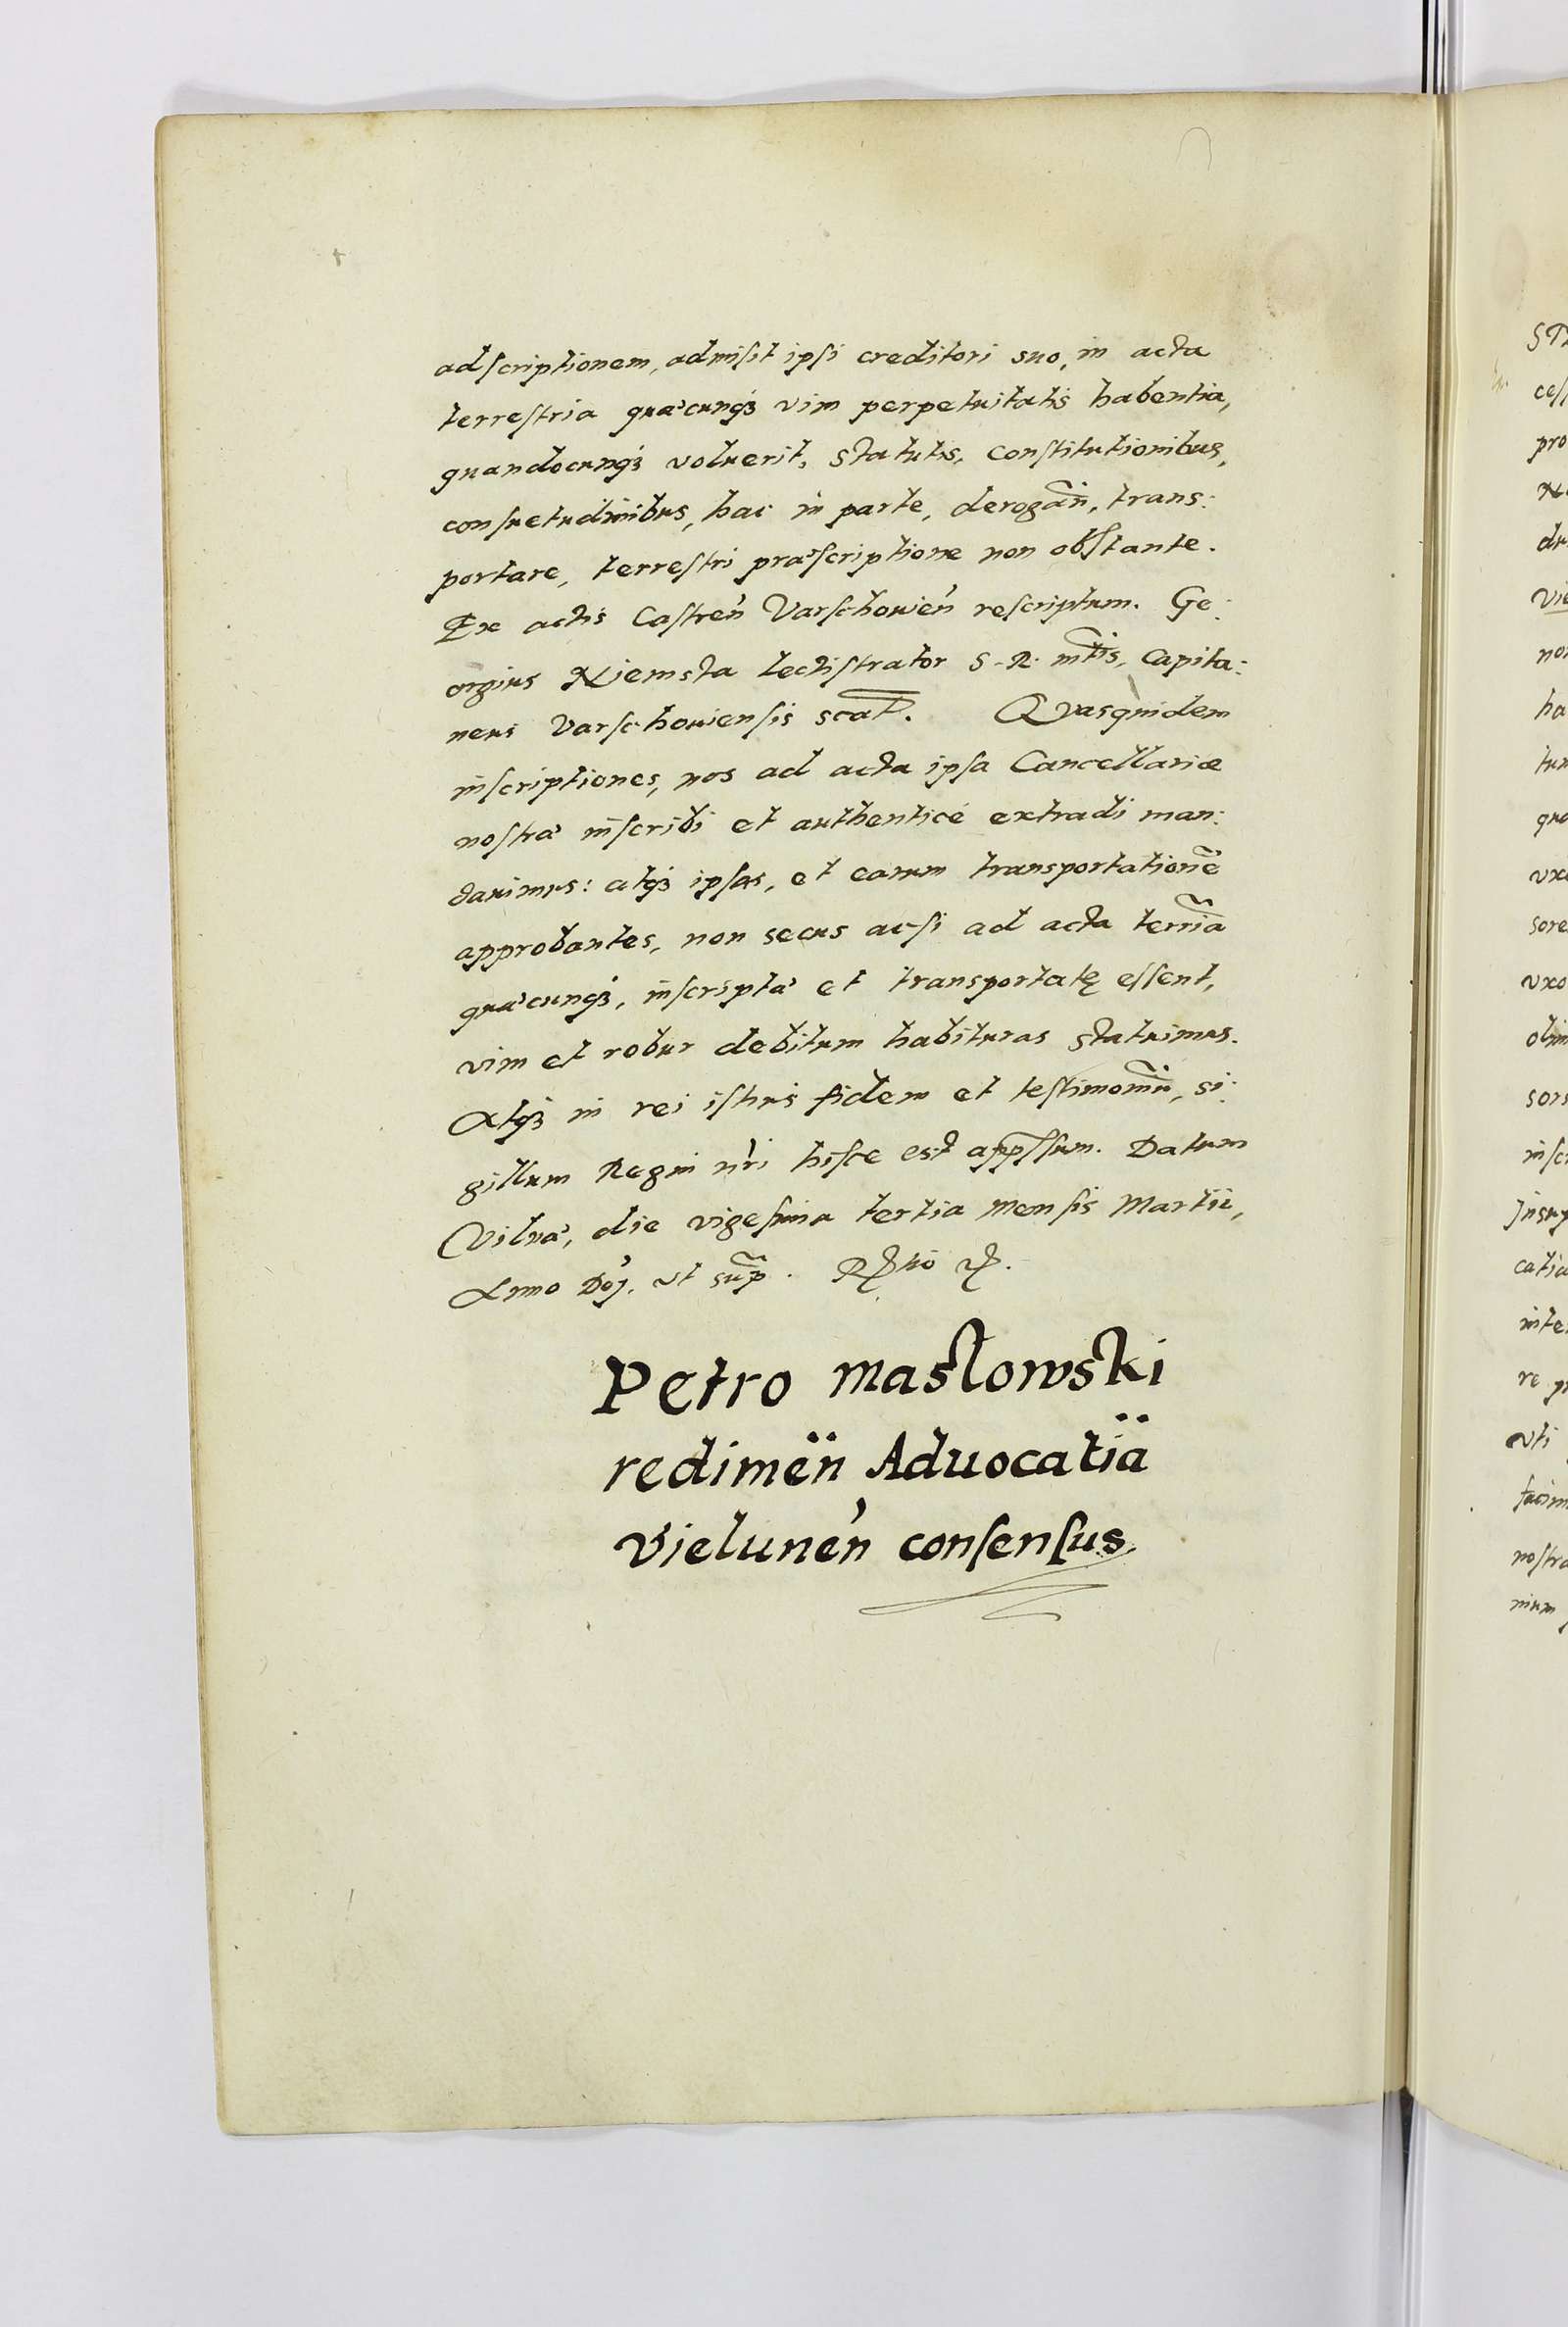 adscriptionem, admisit ipsi creditori suo, in acta
terrestria quæcunqȝ vim perpetuitatis habentia,
quandocunqȝ voluerit, statutis, constitutionibus,
consuetudinibus, hac in parte, derogan̄, trans:
portare, terrestri præscriptione non obstante.
Ex actis Castren̄ Varschouien̄ rescriptum. Ge:
orgius Niemsta tectistrator S. R. mt̄is, Capita:
neus Varschouiensis scat̄. Quasquidem
inscriptiones, nos ad acta ipsa Cancellariæ
nostræ inscribi et authenticè extradi man:
dauimus: atqȝ ipsas, et earum transportationē
approbantes, non secus acsi ad acta terrīa
quæcunqȝ, inscriptæ et transportatę essent,
vim et robur debitum habituras statuimus.
Atqȝ in rei istius fidem et testimoniū, si:
gillum Regni nr̄i hisce est app̄ssum. Datum
Vilnæ, die vigesima tertia mensis Martii,
Anno Doj. vt sup̄.
Petro maslowski
redimen̄ Aduocatiā
Vielunen̄ consensus
ST
ces
pro
du
vie
no
ha
tum
qua
vxo
sore
vxo
olim
sors
insc
Insup
catia
inte
re
vti
facim
nostra
nium